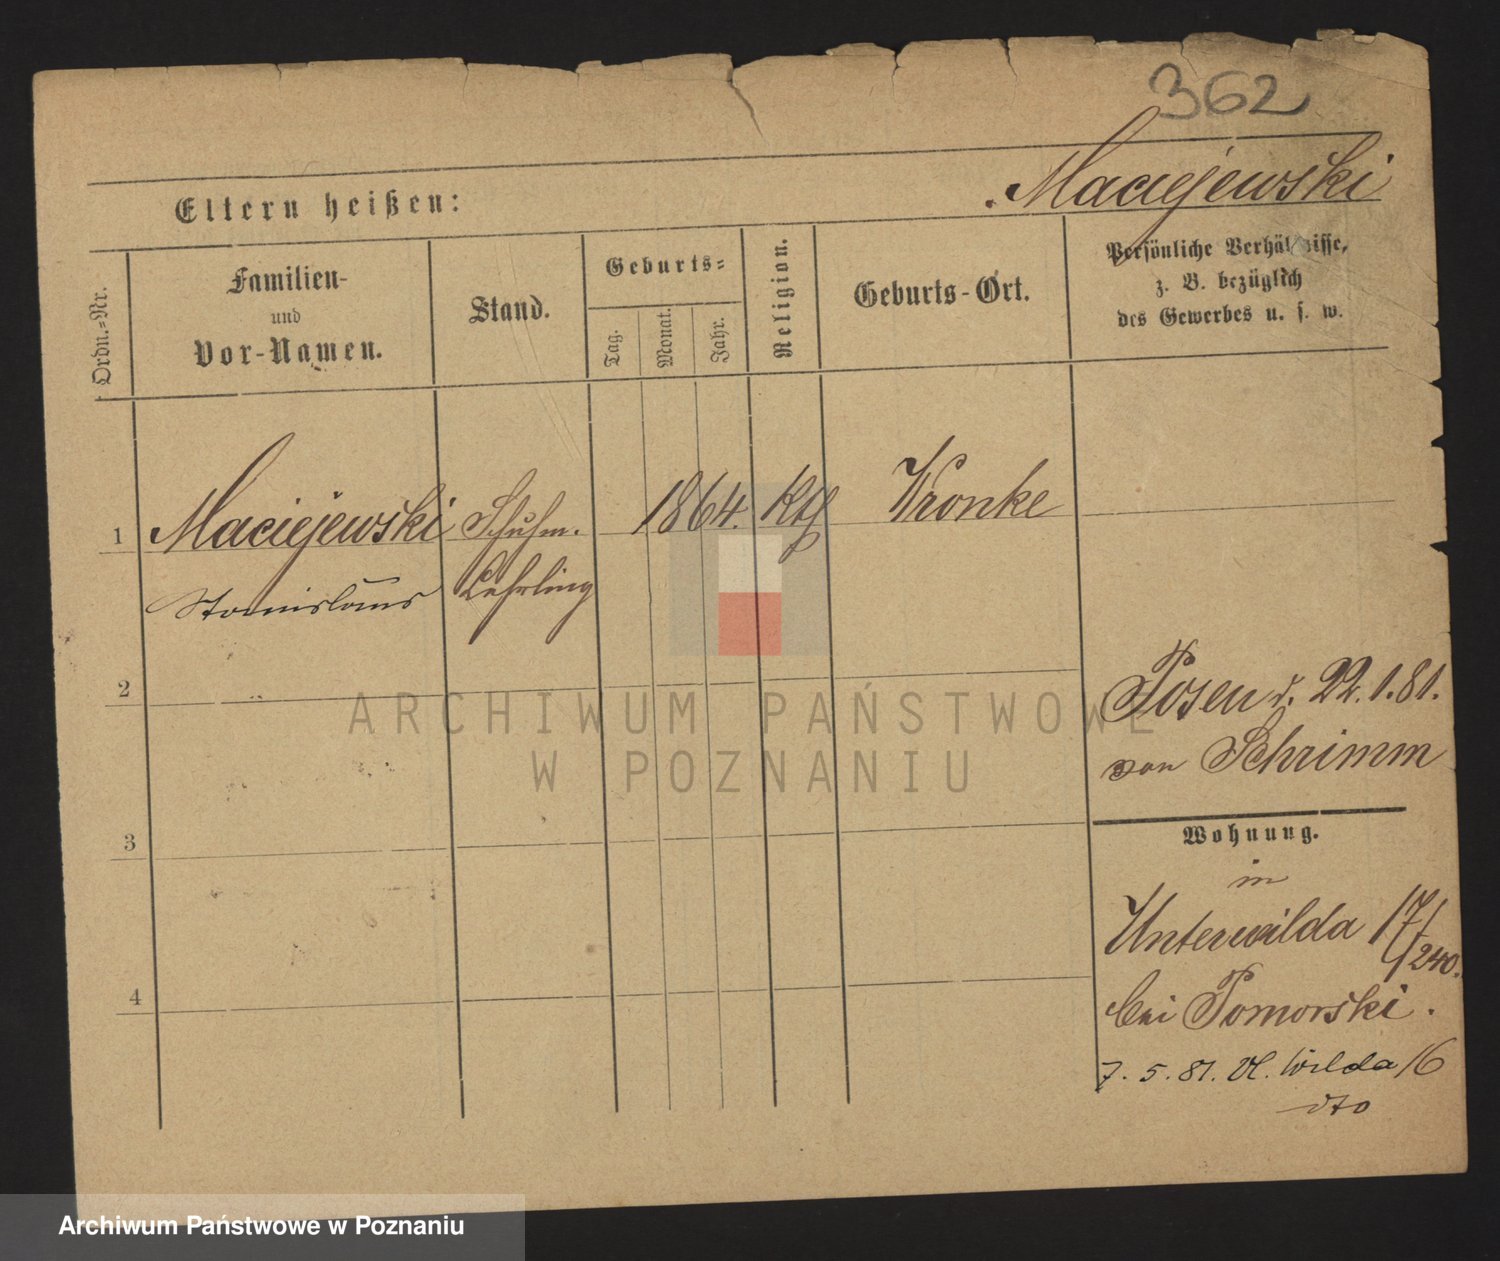 362
Maciejewski
Eltern heißen:
Ordn.=Nr.
Familien-
und
Vor-Namen.
Stand.
Geburts=
Tag.
Monat.
Jahr.
Religion.
Geburts-Ort.
Persönliche Verhältnisse,
z. B. bezüglich
des Gewerbes u. s. w.
1 Maciejewski Schuhm. 1864. Kth Wronke
Stanislaus Lehrling
2
Posen d. 22.1.81.
von Schrimm
3
Wohnung.
in
Unterwilda 17/240.
bei Pomorski.
4
7. 5. 81. Wilda 16
dto
ARCHIWUM PAŃSTWOWE
W POZNANIU
Archiwum Państwowe w Poznaniu